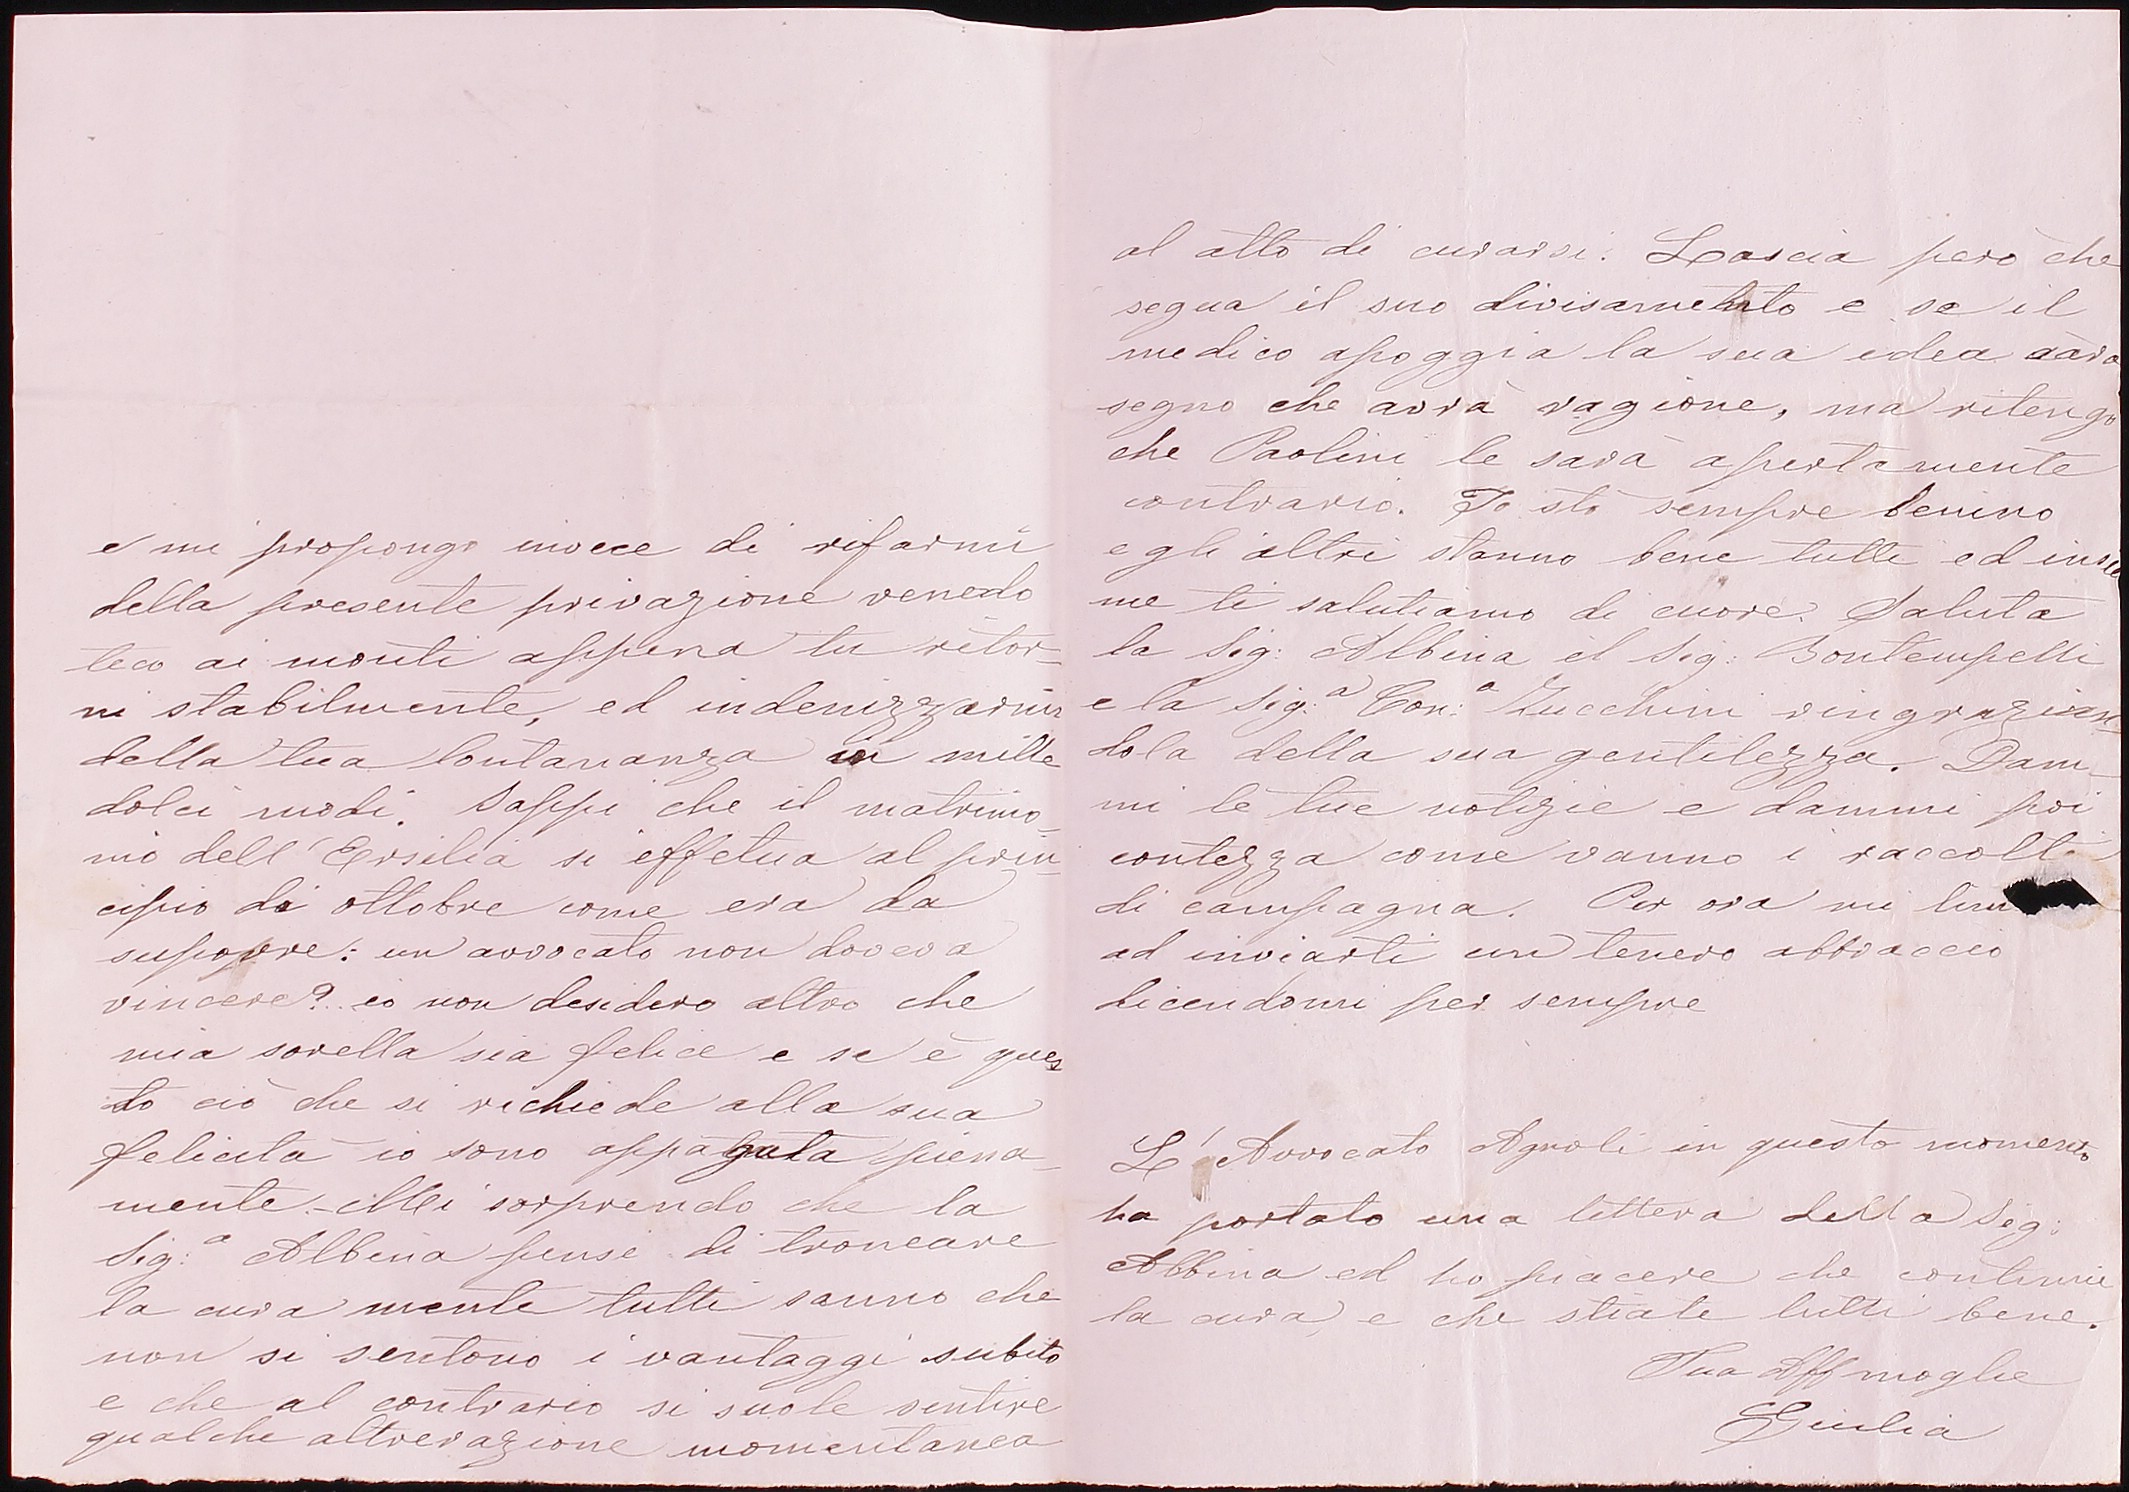 e mi propongo invece di rifarmi
della presente privazione venendo
teco ai monti appena tu ritor-
ni stabilmente, ed indenizzarmi
della tua lontananza in mille
dolci modi. Sappi che il matrimo-
nio dell'Ersilia si effetua al prin-
cipio di ottobre come era da
supporre: un avvocato non doveva
vincere? io non desidero altro che
mia sorella sia felice e se è ques
to ciò che si richiede alla sua
felicità io sono appagata piena-
mente. - Mi sorprendo che la
Sig:a Albina pensi di troncare
la cura mente tutti sanno che
non si sentono i vantaggi subito
e che al contrario si suole sentire
qualche altrerazione momentanea
al atto di curarsi. Lascia però che
segua il suo divisamento e se il
medico apoggia la sua idea sarà
segno che avrà ragione, ma ritengo
che Paolini le sarà apertamente
contrario. Io stò sempre benino
e gli altri stanno bene tutti ed insie
me ti salutiamo di cuore. Saluta
la Sig: Albina il Sig: Bontempelli
e la Sig:a Con:a Zucchini ringrazian-
dola della sua gentilezza. Dam-
mi le tue notizie e dammi poi
contezza come vanno i raccolti
di campagna. Per ora mi lim
ad inviarti un tenero abbraccio
dicendomi per sempre
L'Avvocato Agnoli in questo momento
ha portato una lettera della Sig:
Albina ed ho piacere che continui
la cura, e che stiate tutti bene.
Tua Aff moglie
Giulia